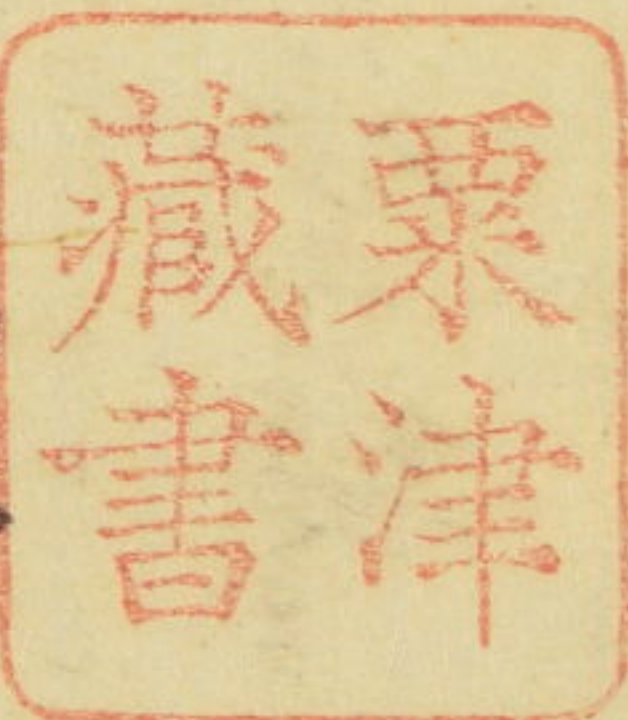 粟津
藏書